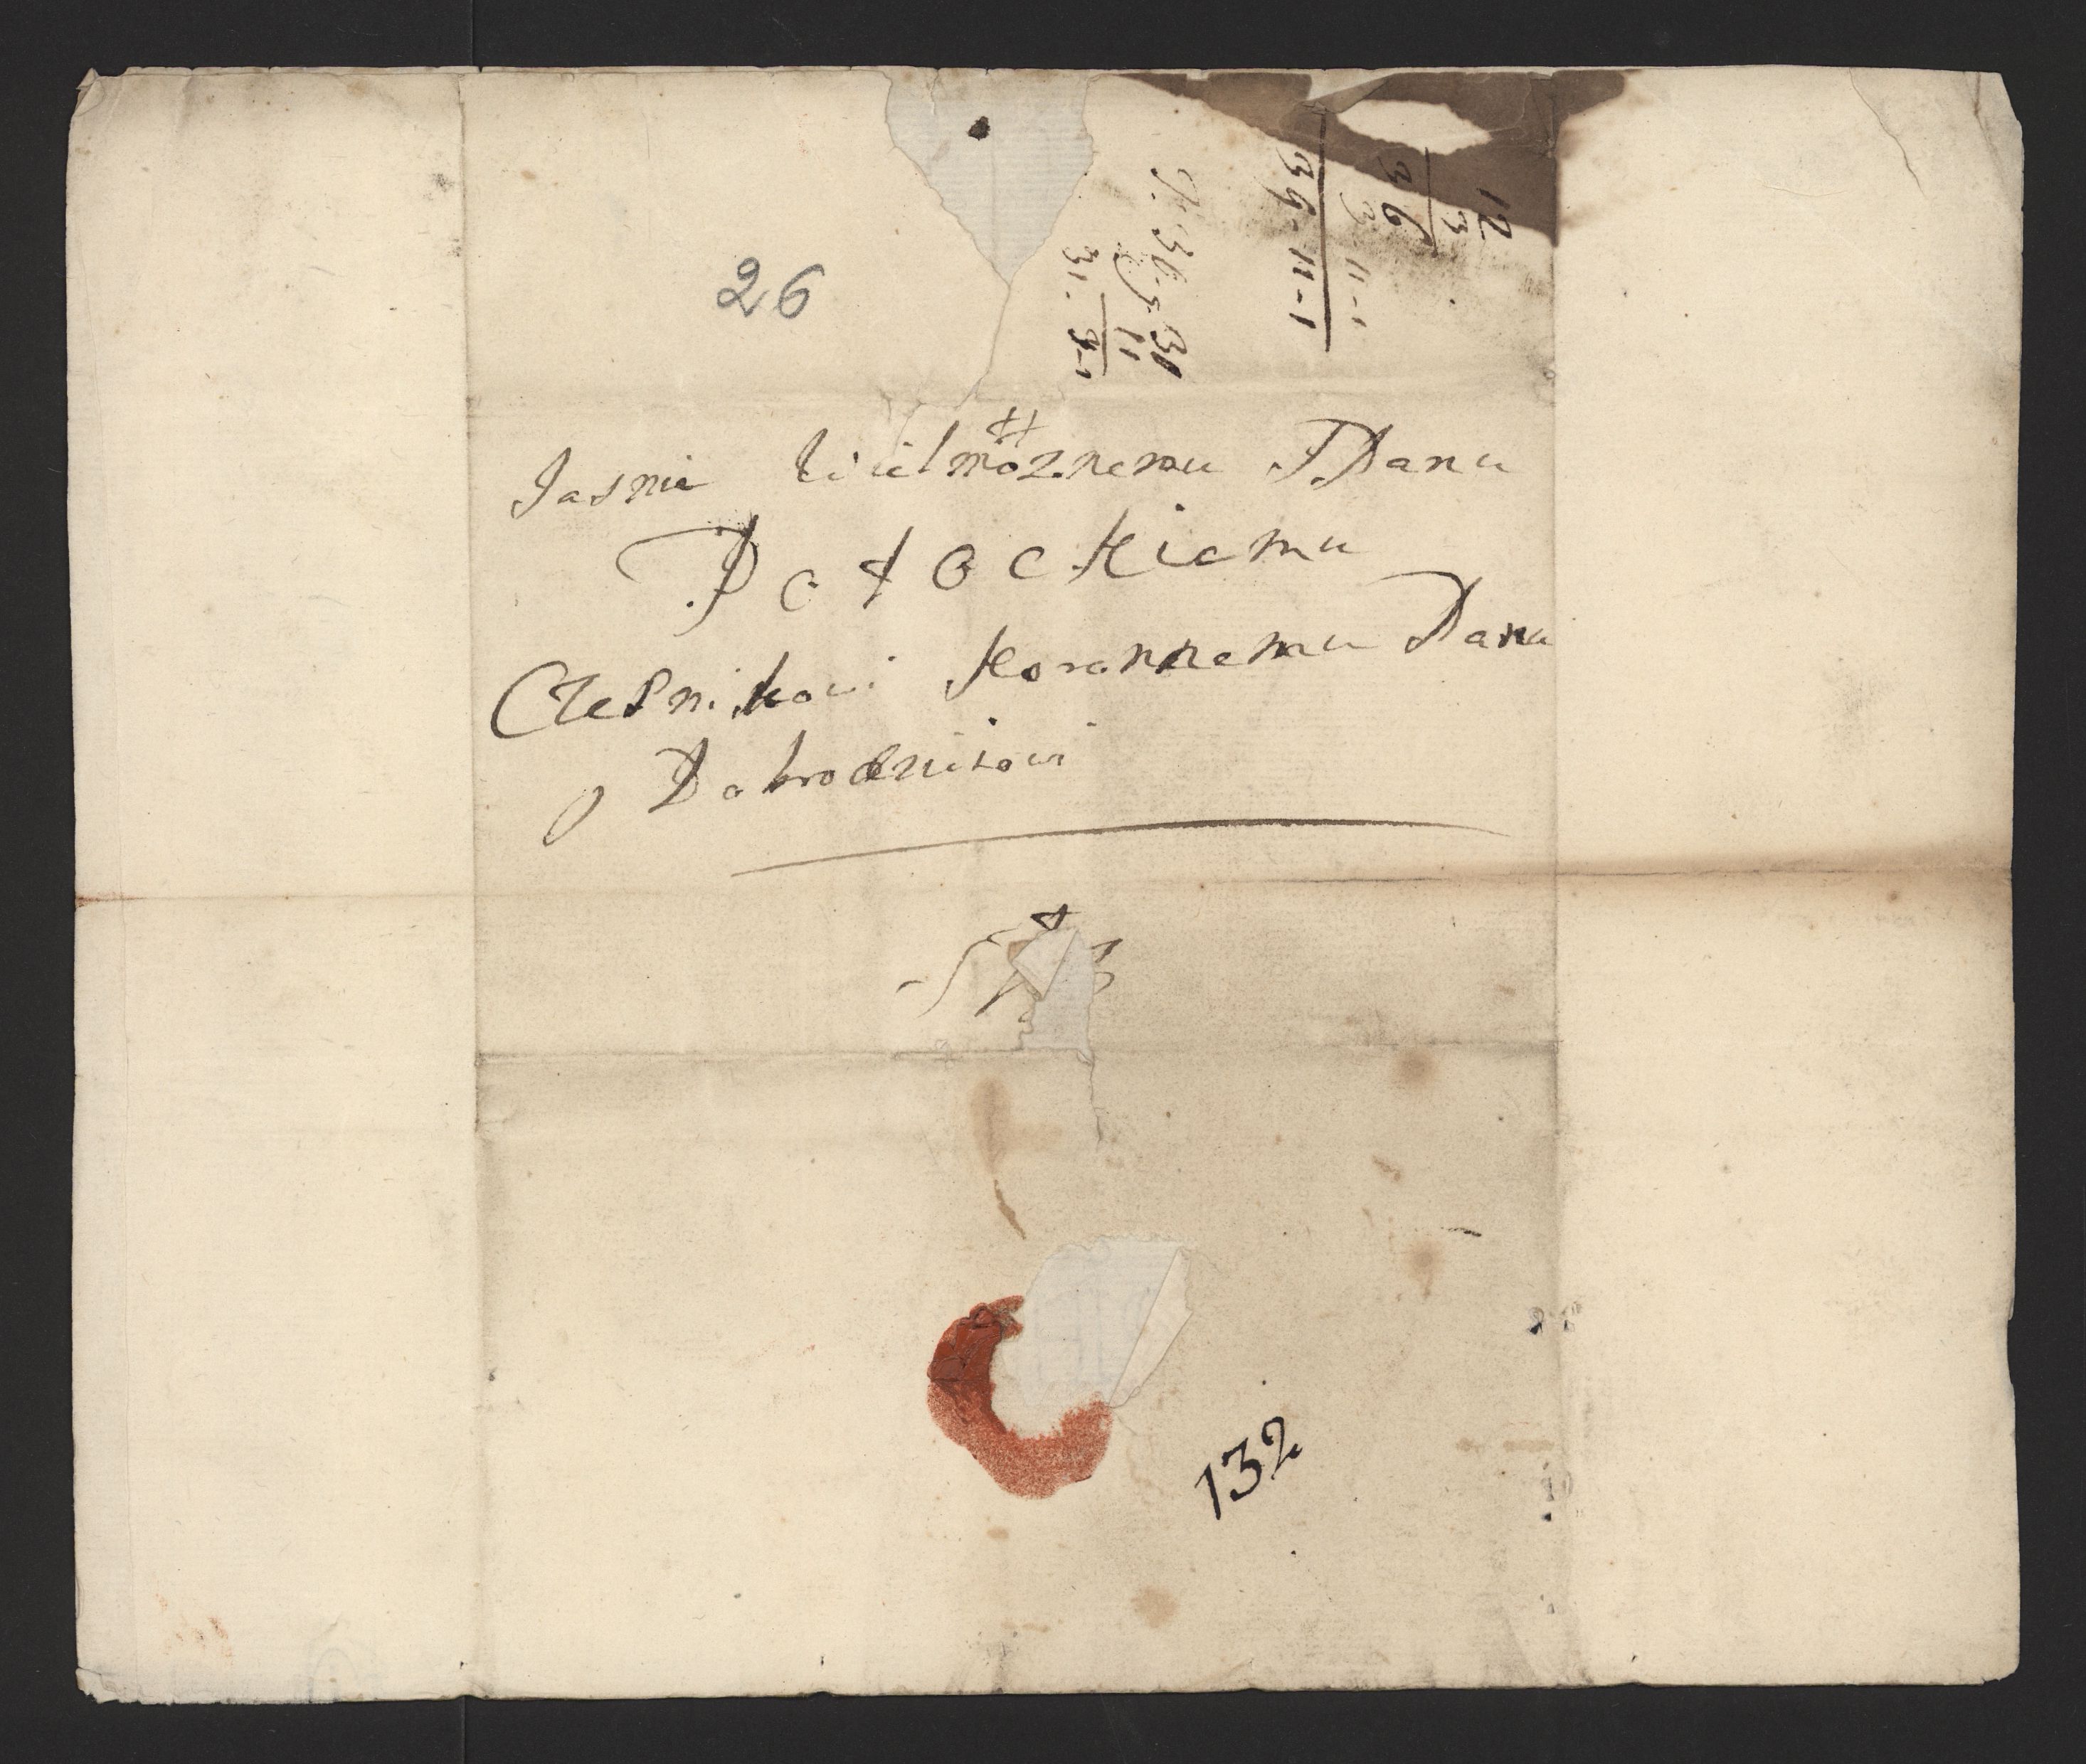 26
12
3
36
3 11-1
39-11-1
36 g 31
11
31. 9-1
Jasnie Wielmożnemu JPanu
Potockiemu
Czesnikowi Koronnemu Panu
y Dobrodzieiowi
132